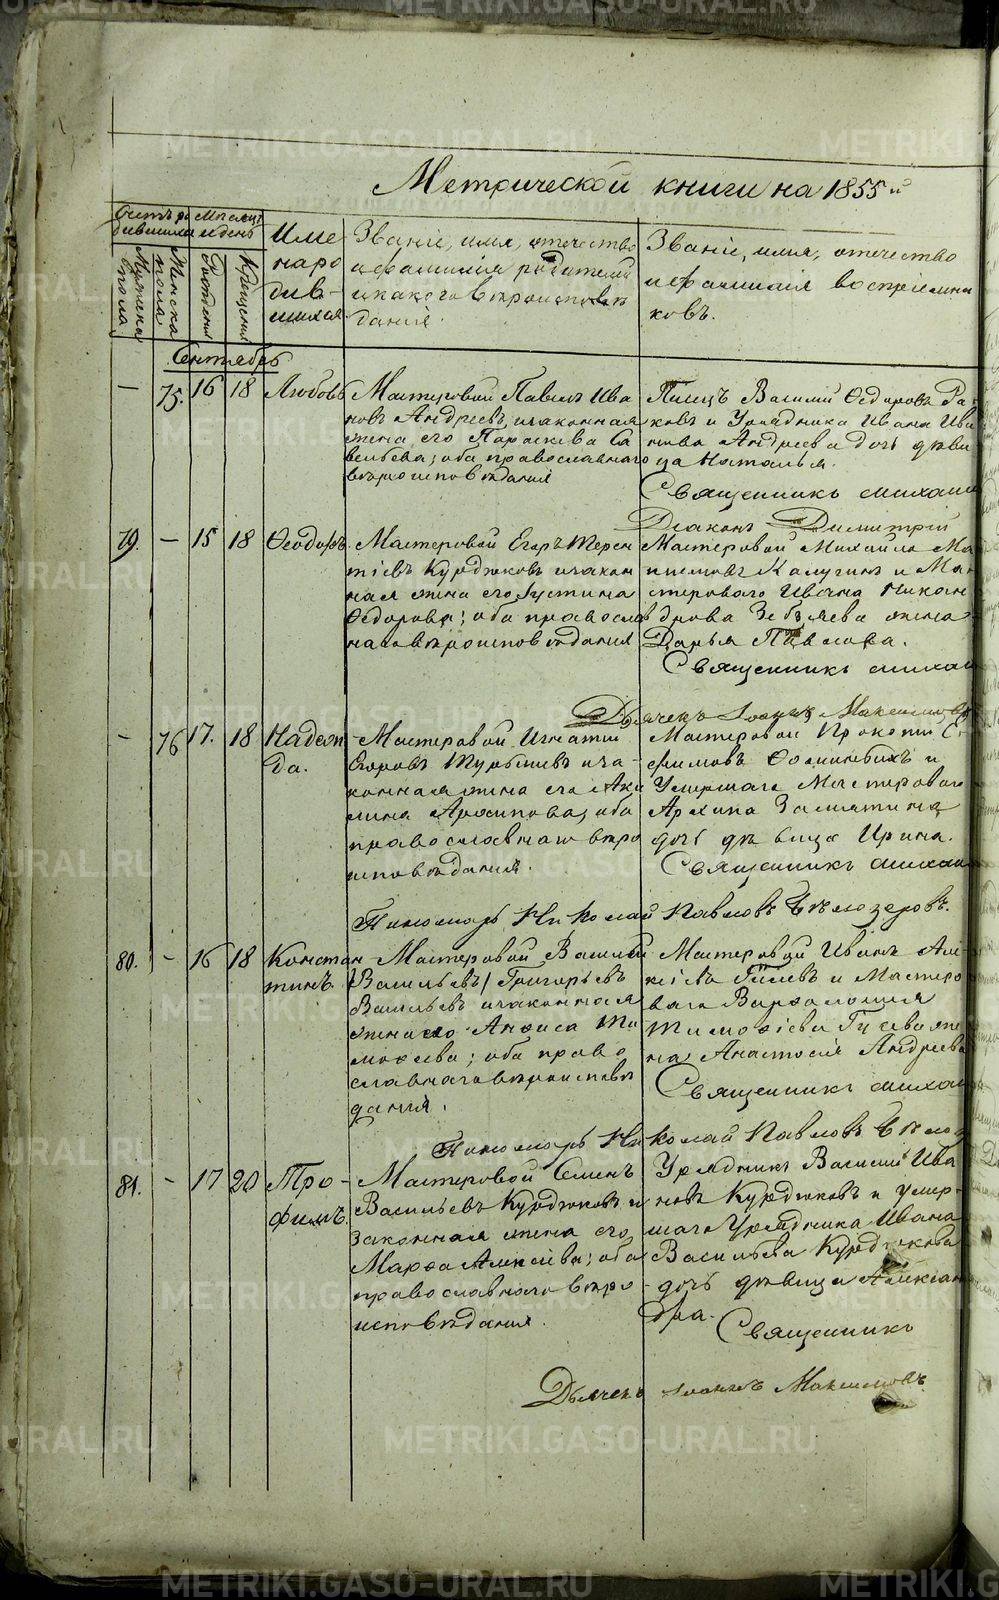 METRIKI.GASO-URAL.RU
Метрической книги на 1855й
Счетъ ро
дившихся
Мужеска
пола
Женска
пола
Месяцъ
и день
Рождения
Крещения
Име
на ро
див-
шихся.
Званіе, имя, отечество
и фамилія родителей
и какого вѣроисповѣ
данія.
Званіе, имя, отечество
и фамилія воспріемни
ковъ.
Сентябрь
— 75. 16 18 Любовь
Мастеровой Павелъ Ива
новъ Андреевъ, и законная
жена его Параскева Са
вельева; оба православнаго
вѣроисповѣданія
Писецъ Василий Ѳедоровъ Ра
ковъ и Урядника Ивана Ива
нова Андреева дочь дѣви
ца Наталья.
Священникъ Михаи
Діаконъ Димитрій
79. — 15 18 Ѳеодоръ.
Мастеровой Егоръ Терен
тіевъ Курдюковъ и закон
ная жена его Устина
Ѳедорова; оба православ
наго вѣроисповѣданія
Мастеровой Михайло
Калугинъ и Ма
стероваго Ивана Никан
дрова жена
Дарья Павлова.
Священникъ Михаи
Дьячекъ Іоаннъ Максимовъ
— 76 17. 18 Надеж
да.
Мастеровой Игнатій
Егоровъ и за-
конная жена его Аку
лина Архипова; оба
православнаго вѣро
исповѣданія.
Мастеровой Прокопій
и
Умершаго Мастероваго
Архипа Замятина
дочь дѣвица Ирина.
Священникъ Михаи
Пономарь Николай Павловъ Бѣлозеровъ.
80. — 16 18 Констан
тинъ.
Мастеровой Василий
Васильевъ/ Григорьевъ
Васильевъ и законная
жена его Анфиса Ти
мофеева; оба право
славнаго вѣроисповѣ
данія.
Мастеровой Иванъ Але
ксіевъ Гусевъ и Мастеро
ваго Варфоломея
Тимофіева Гусева же
на Анастасія Андреева
Священникъ Михаи
Пономарь Николай Павловъ Бѣлоз
81. — 17 20 Тро-
фимъ.
Мастеровой Семенъ
Васильевъ Курдюковъ и
законная жена его
Марфа Алексіева; оба
православнаго вѣро
исповѣданія.
Урядникъ Василий Ива
новъ Курдюковъ и умер-
шаго Урядника Ивана
Васильева Курдюкова
дочь дѣвица Алексан
дра.
Священникъ
Дьячекъ Іоаннъ Максимовъ.